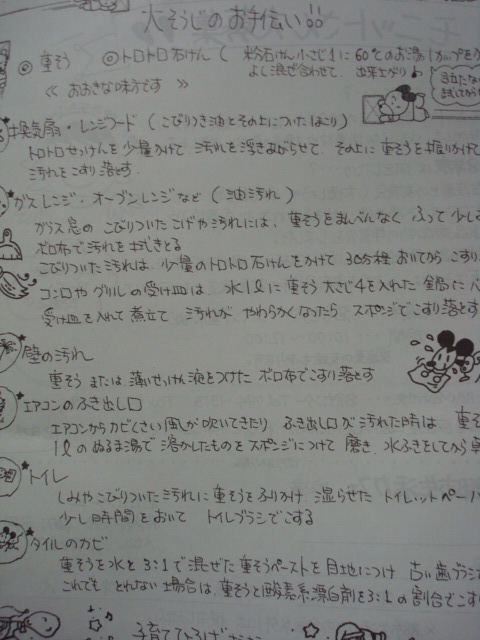 大そうじのお手伝い
◎重そう ◎トロトロ石けん ( 粉石けん小さじ1に60℃のお湯1カップを
よく混ぜ合わせて、出来上がり♪
≪ おおきな味方です ≫
換気扇・レンジフード (こびりつき油とその上についたほこり)
トロトロせっけんを少量かけて、汚れを浮きあがらせて、その上に重そうを振りかけて
汚れをこすり落とす。
ガスレンジ・オーブンレンジなど (油汚れ)
ガラス窓の こびりついたこげや汚れには、重そうをまんべんなく ふって 少し
ボロ布で汚れを ふきとる
こびりついた汚れは、少量のトロトロ石けんをかけて 30分程 おいてから こすり
コンロやグリルの受け皿は 水1ℓに 重そう 大さじ4を入れた 鍋に
受け皿を入れて 煮立て 汚れが やわらかくなったら、スポンジでこすり落とす
壁の汚れ
重そう または、薄いせっけん液をつけた ボロ布でこすり落とす
エアコンのふき出し口
エアコンからカビくさい風が吹いてきたり ふき出し口が汚れた時は、重そ
1ℓのぬるま湯で 溶かしたものを スポンジにつけて 磨き、水ふきをしてから
トイレ
しみやこびりついた汚れに重そうをふりかけ 湿らせた トイレットペーパ
少し時間をおいて トイレブラシでこする
タイルのカビ
重そうを水と 3:1で混ぜた 重そうペーストを 目地につけ 古い歯ブラシ
これでも とれない場合は、重そうと酸素系漂白剤を3:1の割合で
子育てひろば